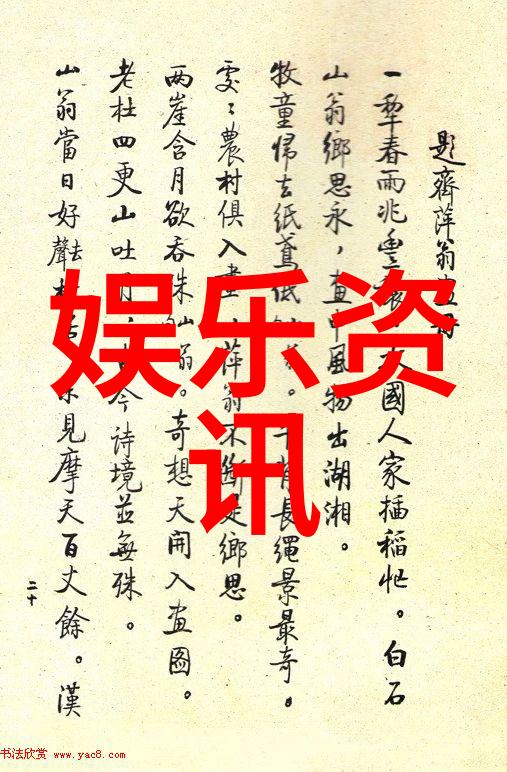 题齐萍翁画册
一犁春雨兆丰穰。
国人家插稻忙。白石
山翁乡思永,画中风物出湖湘。
牧童归去纸鸢低
背长绳景最奇。
处々农村俱入画,萍翁不断是乡思。
两崖含月欲吞珠
翁。奇想天开入画图。
老杜四更山吐月,古今诗境并无殊。
山翁当日好声去
见摩天百丈余。汉
二十
娱乐资讯
书法欣赏 www.yac8.com